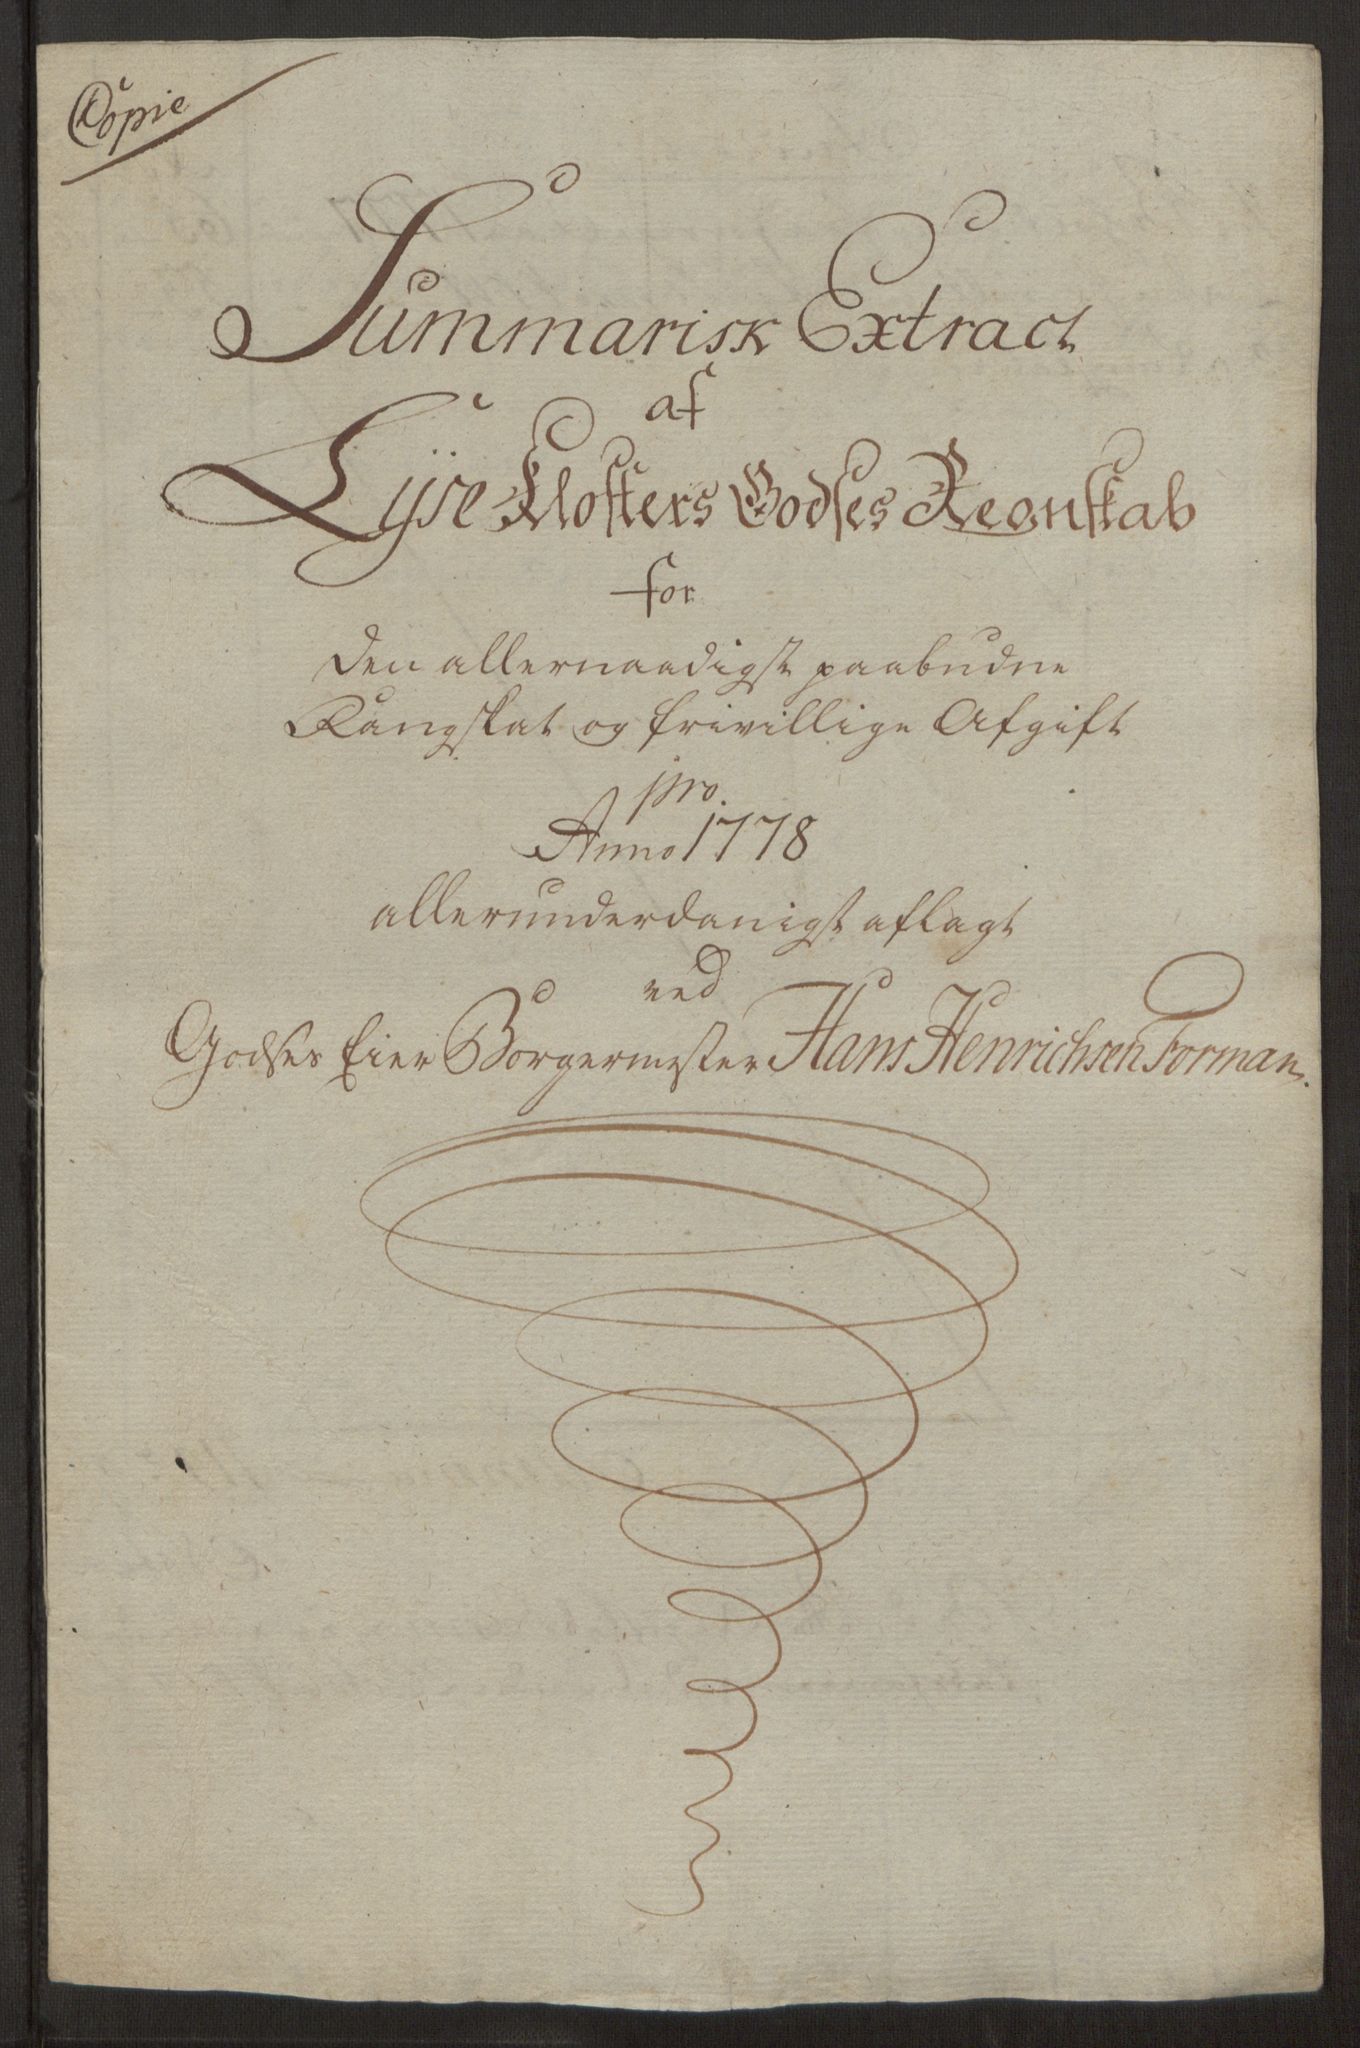 Copie
Summarisk Extract
af
Lÿse Klosters Godses Regnskab
for
den allernaadigst paabudne
Rangskat og frivillige Afgift
pro.
Anno 1778
allerunderdanigst aflagt
ved
Godses Eier Borgermester Hans Henrichsen Forman.